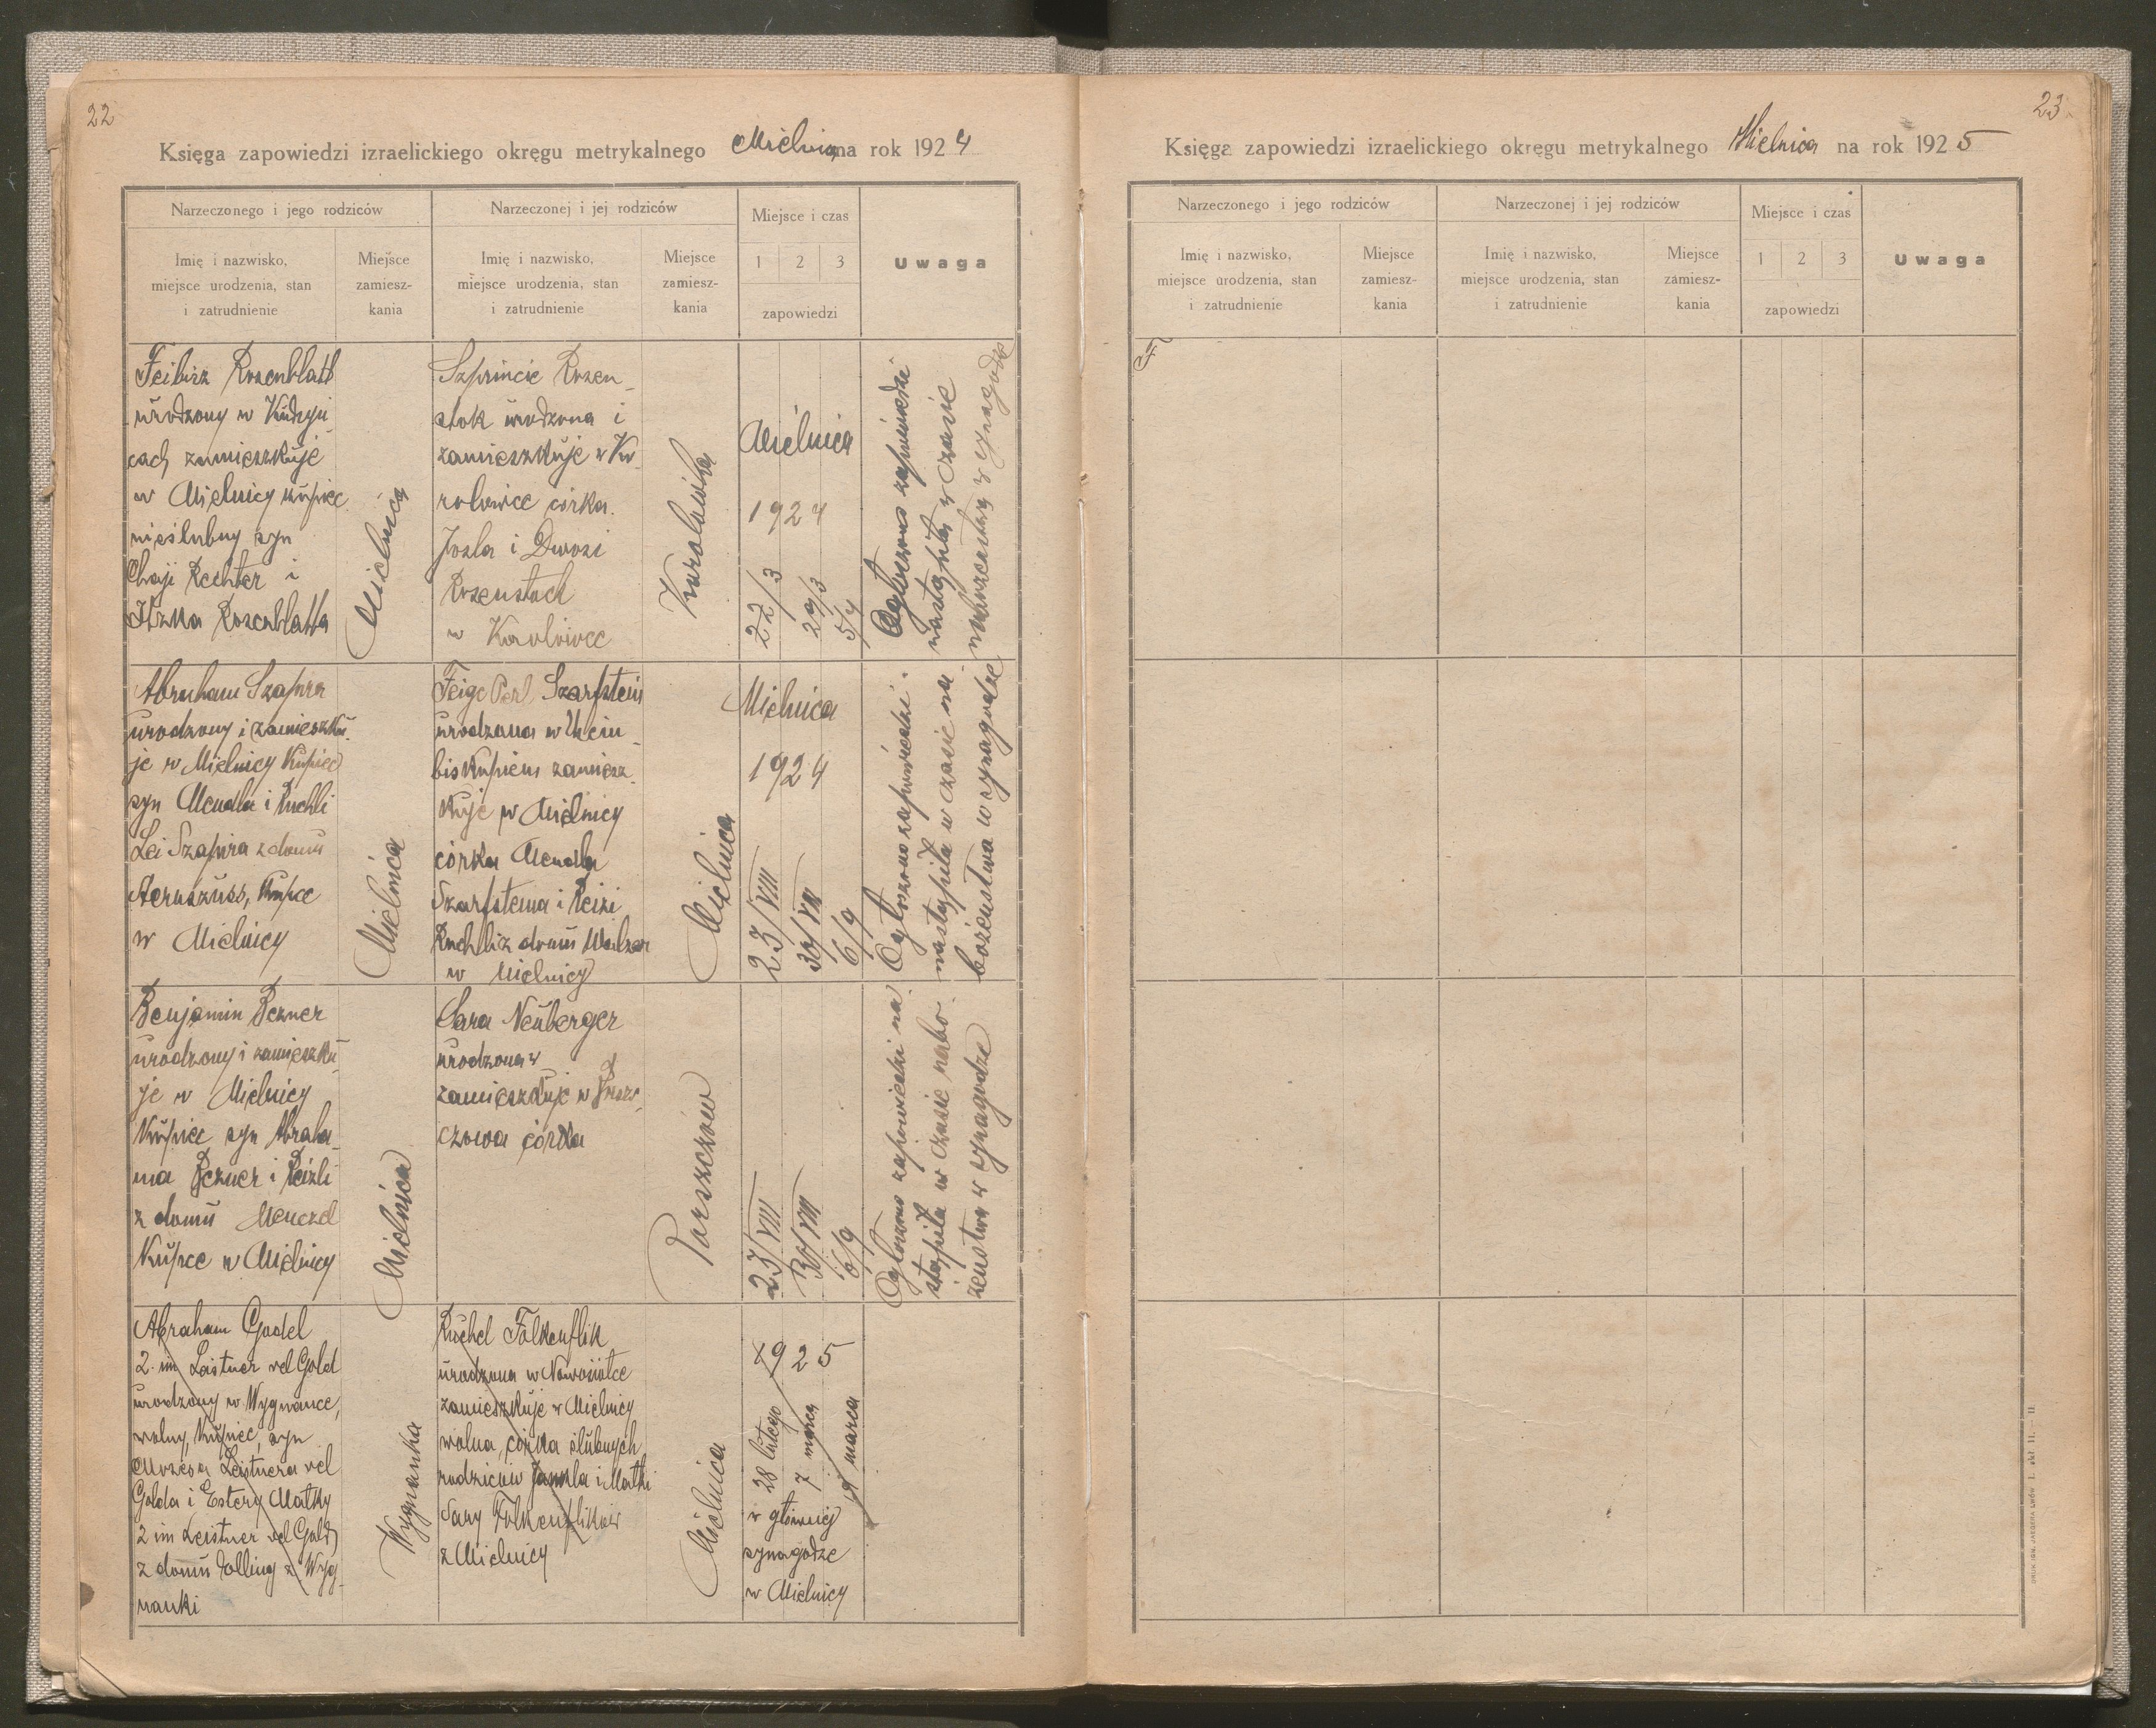 22
Księga zapowiedzi izraelickiego okręgu metrykalnego Mielnica na rok 1924
Narzeczonego i jego rodziców
Narzeczonej i jej rodziców
Miejsce i czas
Uwaga
Imię i nazwisko,
miejsce urodzenia, stan
i zatrudnienie
Miejsce
zamiesz-
kania
Imię i nazwisko,
miejsce urodzenia, stan
i zatrudnienie
Miejsce
zamiesz-
kania
1 2 3
zapowiedzi
Feibisz Rosenblatt
urodzony w Kudryń
cach zamieszkuje
w Mielnicy kupiec
nieślubny syn
Chaji Rechter i
Itzka Rosenblatta
Mielnica
Szprincie Rozen-
stok urodzona i
zamieszkuje w Ko-
rolowice córka
Josla i Dwosi
Rozenstoch
w
Korolówka
Mielnica
1924
22/3
29/3
5/4
Ogłoszono zapowiedzi
nastąpiła w czasie
w synagodze
Abraham Szapira
urodzony i zamieszku-
je w Mielnicy Kupiec
syn Mendla i Ruchli
Lei Szapira z domu
Kupce
w Mielnicy
Mielnica
Feige Perl Szarfstein
urodzona w Uściu
biskupiem zamiesz-
kuje w Mielnicy
córka Mendla
Szarfsteina i Reizi
Ruchli z domu Walzer
w Mielnicy
Mielnica
Mielnica
1924
23/VIII
30/VIII
6/9
Ogłoszono zapowiedzi
nastąpiła w czasie na-
bożeństwa w synagodze
Benjamin Bezner
urodzony i zamieszku-
je w Mielnicy
Kupiec syn Abraha-
ma Bezner i Reizli
z domu Menczel
Kupce w Mielnicy
Mielnica
Sara Neuberger
urodzona w
zamieszkuje w
czowa córka
Borszczów
23/VIII
30/VIII
6/9
Ogłoszono zapowiedzi na-
stąpiła w czasie nabo-
żeństwa w synagodze
Abraham Godel
2 im Leistner vel Gold
urodzony w Wygnance,
wolny, Kupiec, syn
Mozesa Leistnera vel
Golda i Estery Matky
2 im Leistner vel Gold
z domu Olling z Wyg-
nanki
Wygnanka
Ruchel Folkenflik
urodzona w Nowosiółce
zamieszkuje w Mielnicy
wolna, córka ślubnych
rodziców Jankla i Matki
Sary Folkenflików
z Mielnicy
Mielnica
1925
28 lutego
7 marca
14 marca
w głównej
synagodze
w Mielnicy
23.
Księga zapowiedzi izraelickiego okręgu metrykalnego Mielnica na rok 1925
Narzeczonego i jego rodziców
Narzeczonej i jej rodziców
Miejsce i czas
Uwaga
Imię i nazwisko,
miejsce urodzenia, stan
i zatrudnienie
Miejsce
zamiesz-
kania
Imię i nazwisko,
miejsce urodzenia, stan
i zatrudnienie
Miejsce
zamiesz-
kania
1 2 3
zapowiedzi
F